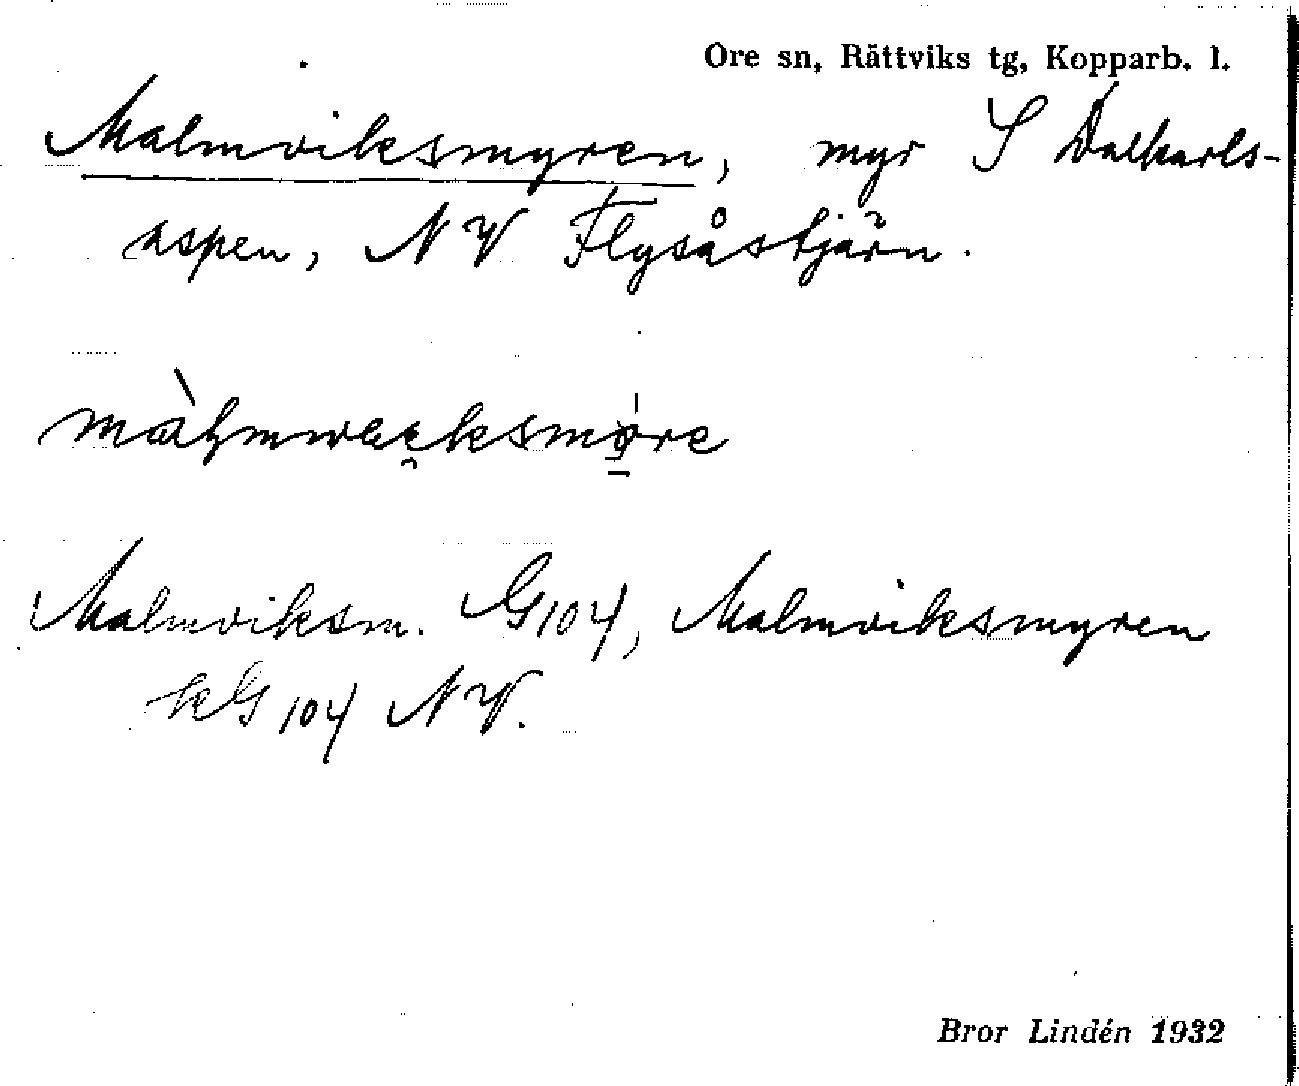 Ore sn, Rättviks tg, Kopparb. l.
Malmviksmyren, myr S Dalkarls-
aspen, NV Flysåstjärn.
Malmviksm. G104, Malmviksmyren
kG 104 NV.
Bror Lindén 1932